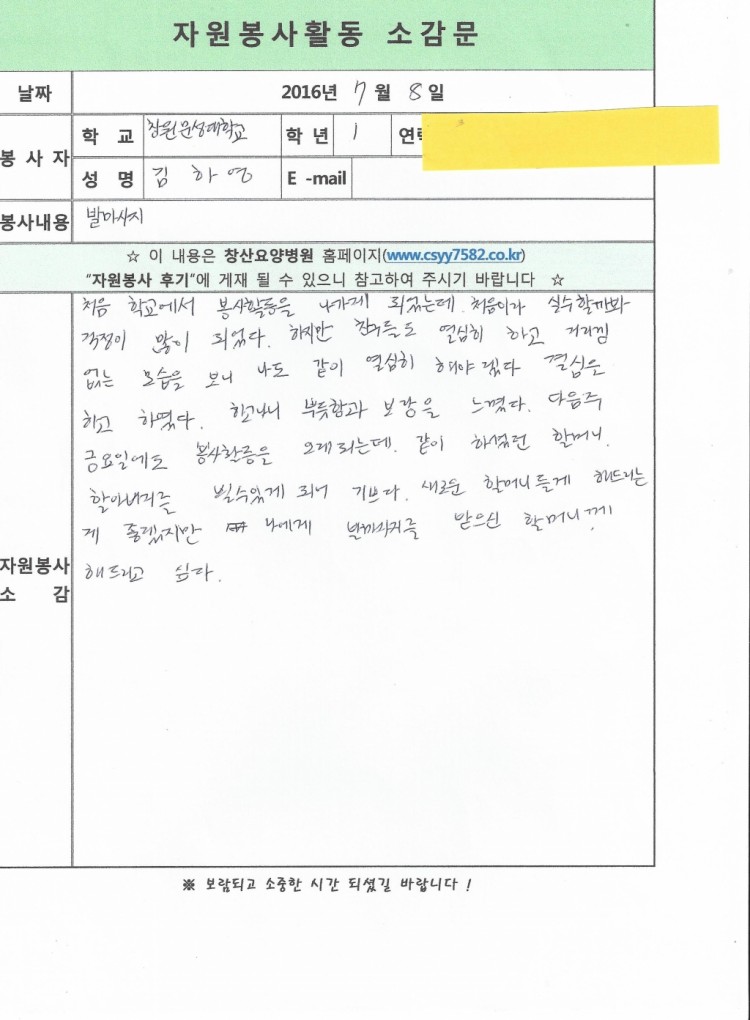 자원봉사활동 소감문
날짜 2016년 7월 8일
봉사자 학 교 창원문성대학교 학 년 1 연락
성 명 김하영 E -mail
봉사내용 발마사지
☆ 이 내용은 창산요양병원 홈페이지(www.csyy7582.co.kr)
"자원봉사 후기"에 게재 될 수 있으니 참고하여 주시기 바랍니다 ☆
처음 학교에서 봉사활동을 나가게 되었는데. 처음이라 실수할까봐
걱정이 많이 되었다. 하지만 친구들도 열심히 하고 거리낌
없는 모습을 보니 나도 같이 열심히 해야겠다 결심을
하고 하였다. 하고나니 뿌듯함과 보람을 느꼈다. 다음주
금요일에도 봉사활동을 오게되는데. 같이 하셨던 할머니.
할아버지를 뵐수있게 되어 기쁘다. 새로운 할머니들께 해드리는
게 좋겠지만 나에게 발마사지를 받으신 할머니께
해드리고 싶다.
자원봉사
소 감
※ 보람되고 소중한 시간 되셨길 바랍니다 !